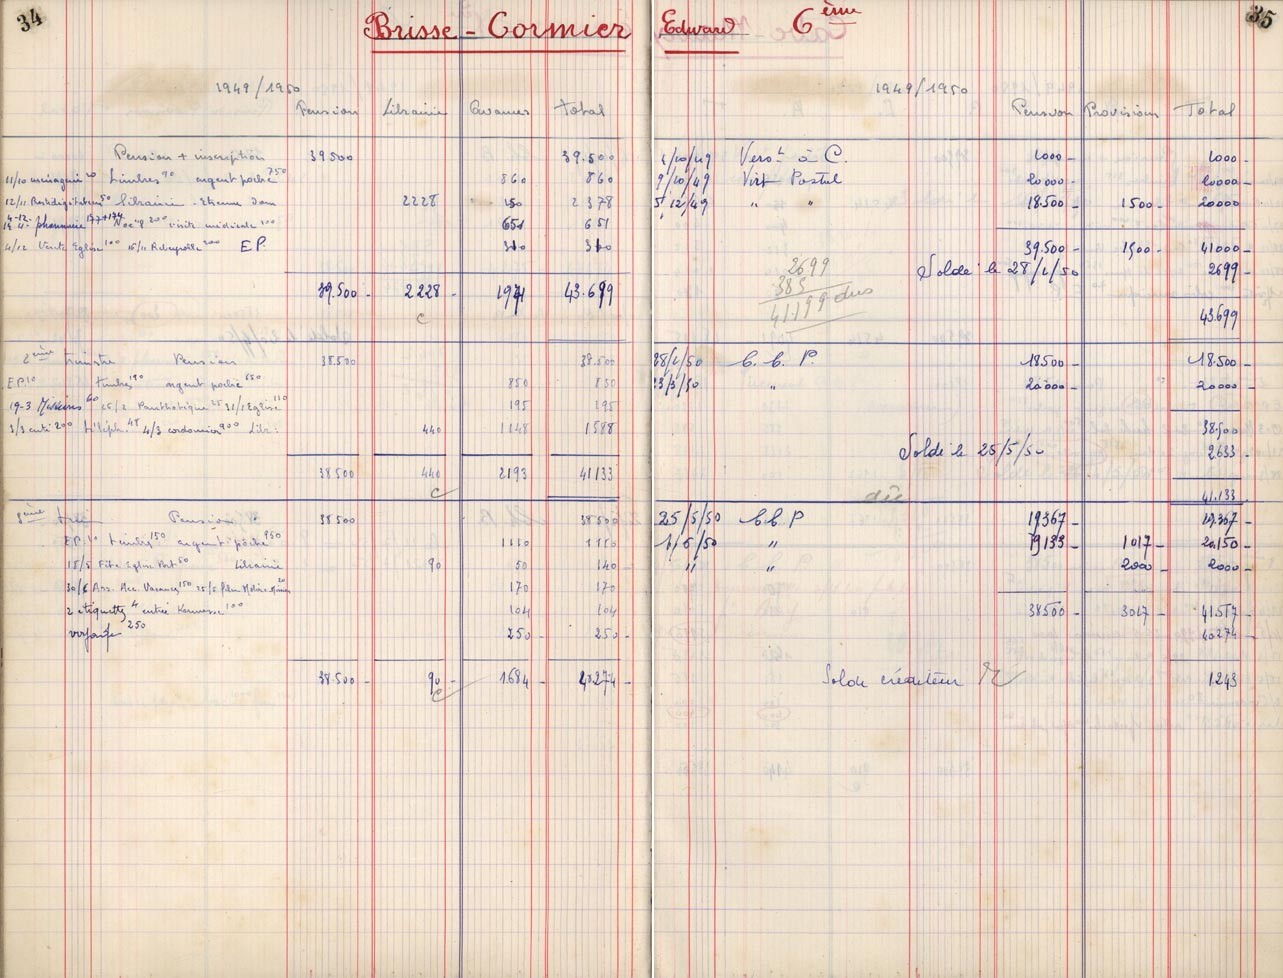 34
Brisse - Cormier
1949/1950
Pension Librairie Avances Total
Pension + inscription 39500 39.500
11/10 ménagerie 20 timbres 90 argent poche 750 860 860
12/11 Prestidigitateur 50 librairie - Etienne Dom 2228 150 2378
pharmacie 177+174 Noël 200 visite médicale 100 651 651
4/12 Vente Eglise 100 15/11 200 E.P. 310 310
39.500 - 2228 - 1971 43.699
c
2ème trimestre Pension 38.500 38.500
E.P. 10 timbres 190 argent poche 650 850 850
19-3 Missions 60 25/2 25 31/1 Eglise 110 195 195
3/3 200 téléph. 48 4/3 cordonnier 900 Libr: 440 1148 1588
38500 440 2193 41133
c
3ème tri Pension 38500 38500
E.P. 10 timbres 150 argent poche 950 1110 1110
15/5 Fête Eglise 50 Librairie 90 50 140 -
30/6 Ass. Acc. Vacances 150 25/5 film 20 170 170
2 étiquettes 4 entrée Kermesse 100 104 104
250 250 - 250 -
38.500 - 90 - 1684 - 40.274 -
c
Edward 6ème
35
1949/1950
Pension Provisions Total
4/10/49 Verst à C. 1000 - 1000 -
9/10/49 Virt Postal 20000 - 20000 -
5/12/49 " " 18.500 - 1500 - 20000
39.500 - 1500 - 41000 -
Soldé le 28/1/50 2699 -
43.699
2699
385
41.199 dus
28/1/50 C.C.P. 18500 - 18.500 -
23/3/50 " 20000 - 20000 -
38.500
Soldé le 25/5/50 2633 -
41.133
dû
25/5/50 C.C.P 19367 - 19.367 -
1/6/50 " 19133 - 1017 - 20.150 -
" " 2000 - 2000 -
38500 - 3017 - 41.517
40274 -
Solde créditeur 1.243